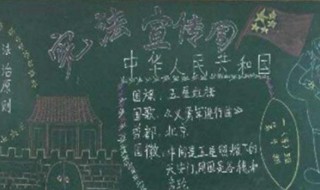 宪法宣传周
中华人民共和国
国旗：五星红旗
国歌：《义勇军进行曲》
首都：北京
国徽：中间是五星照耀下的
天安门，周围是谷穗和
齿轮
法治原则